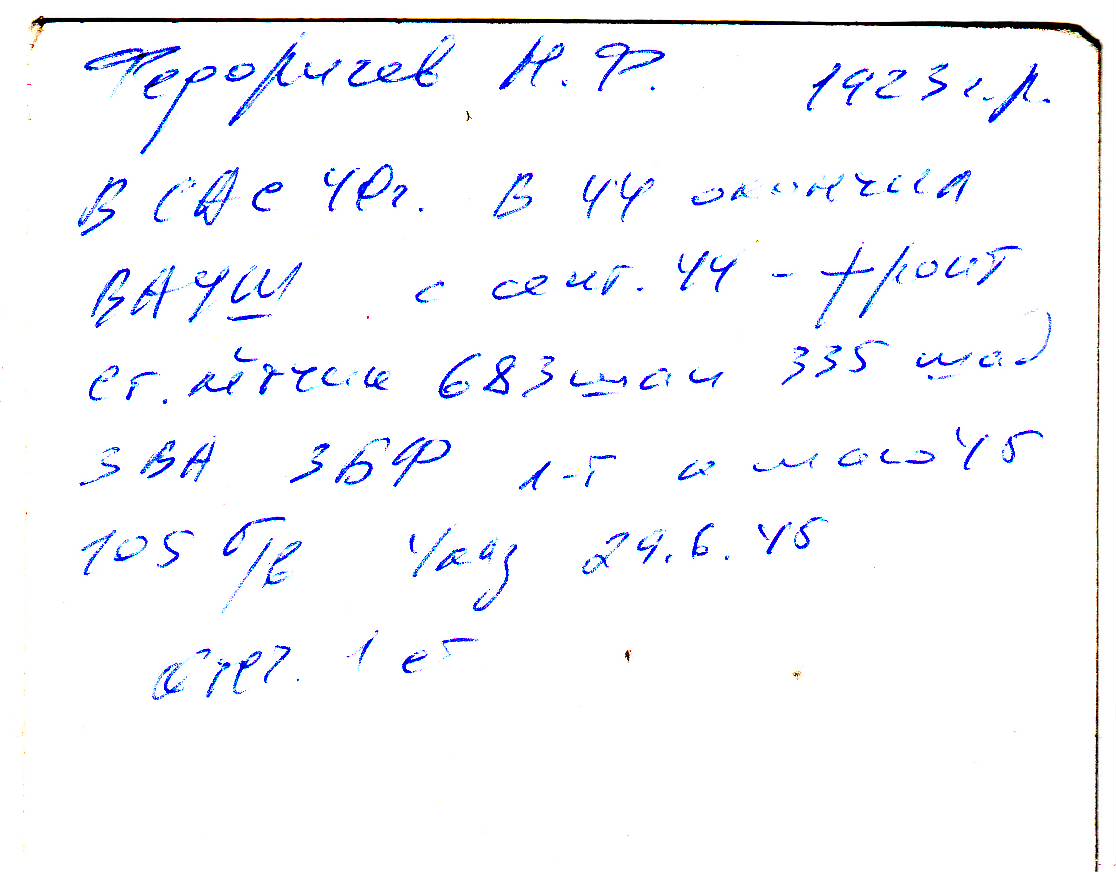 Федоричев Н. Ф. 1923 г.р.
В СА с 40г. В 44 окончил
ВАУШ с сент. 44 - фронт
ст. лётчик 683 шап 335 шад
3 ВА 3БФ 1-т к маю 45
105 б/в Указ 29.6.45
1 ст